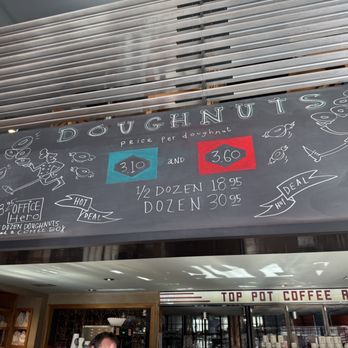 DOUGHNUTS
price per doughnut
3.10 AND 3.60
1/2 DOZEN 18.95
DOZEN 30.95
HOT DEAL
HOT DEAL
OFFICE
Hero
DOZEN DOUGHNUTS
TOP POT COFFEE